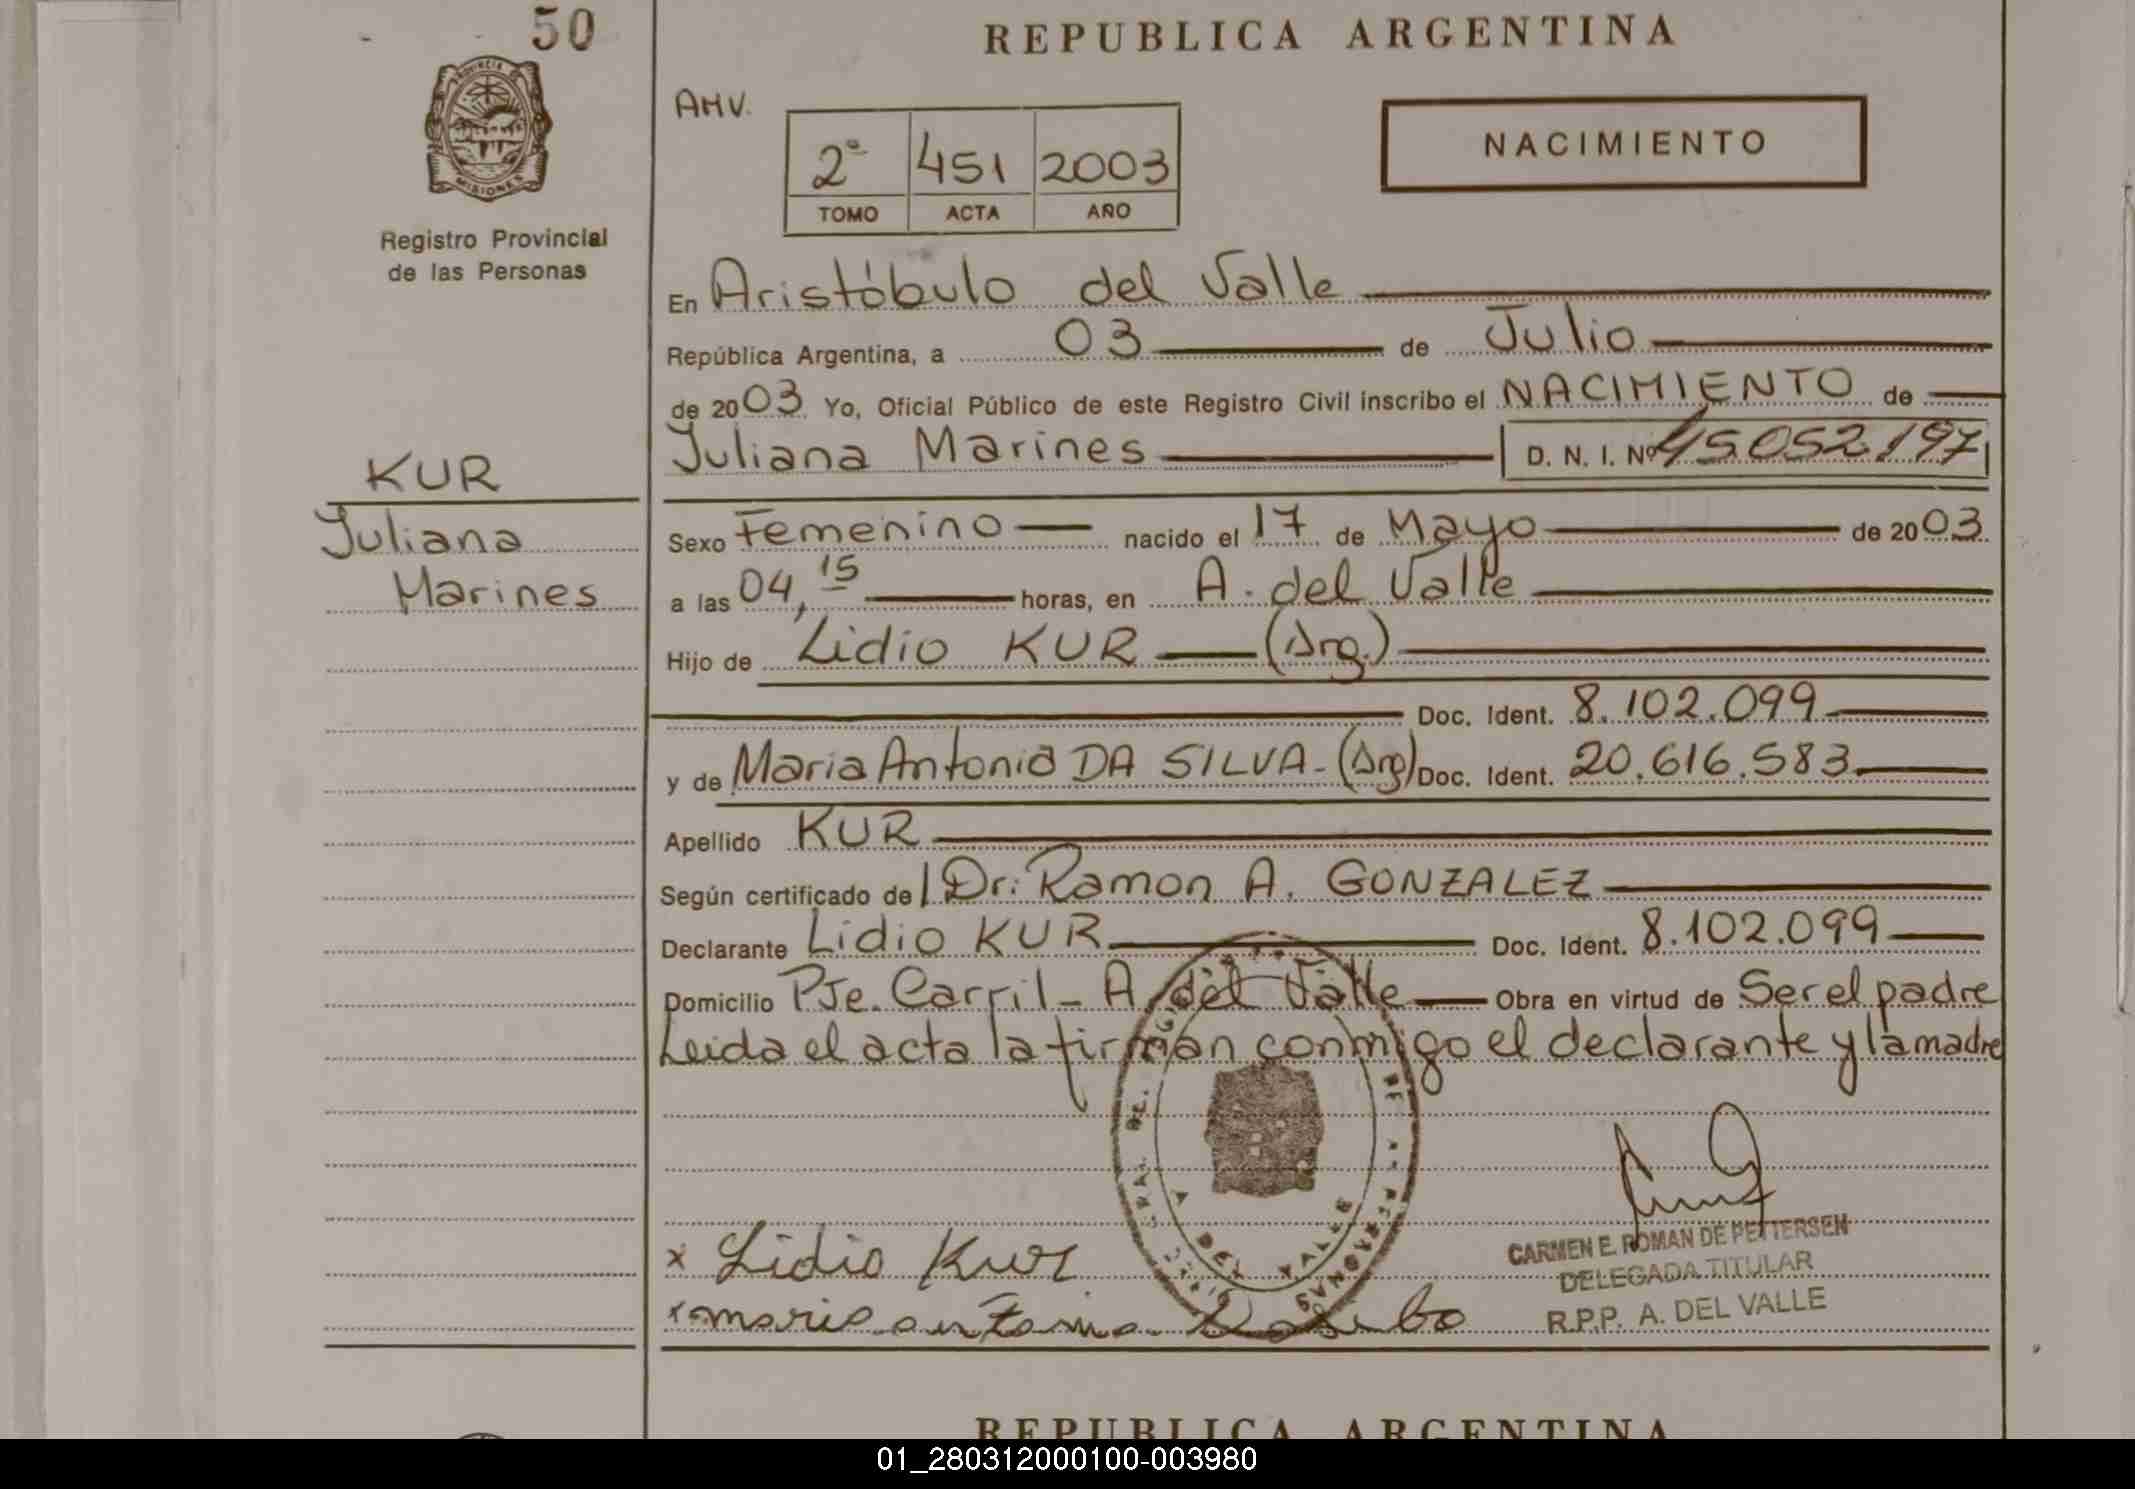 50
REPUBLICA ARGENTINA
PROVINCIA DE
MISIONES
Registro Provincial
de las Personas
AMV.
2º 451 2003
TOMO ACTA AÑO
NACIMIENTO
En Aristóbulo del Valle
República Argentina, a 03 de Julio
de 2003 Yo, Oficial Público de este Registro Civil inscribo el NACIMIENTO de
Juliana Marines D. N. I. Nº 45.052.197
KUR
Juliana
Marines
Sexo Femenino nacido el 17 de Mayo de 2003
a las 04,15 horas, en A. del Valle
Hijo de Lidio KUR (Arg.)
Doc. Ident. 8.102.099
y de Maria Antonia DA SILVA - (Arg) Doc. Ident. 20.616.583
Apellido KUR
Según certificado de Dr. Ramon A. GONZALEZ
Declarante Lidio KUR Doc. Ident. 8.102.099
Domicilio Pje. Carril - A. del Valle Obra en virtud de Ser el padre
Leida el acta la firman conmigo el declarante y la madre
A DEL VALLE
x Lidio Kur
x maria antonia
CARMEN E. ROMAN DE PETTERSEN
DELEGADA TITULAR
R.P.P. A. DEL VALLE
REPUBLICA ARGENTINA
01_280312000100-003980